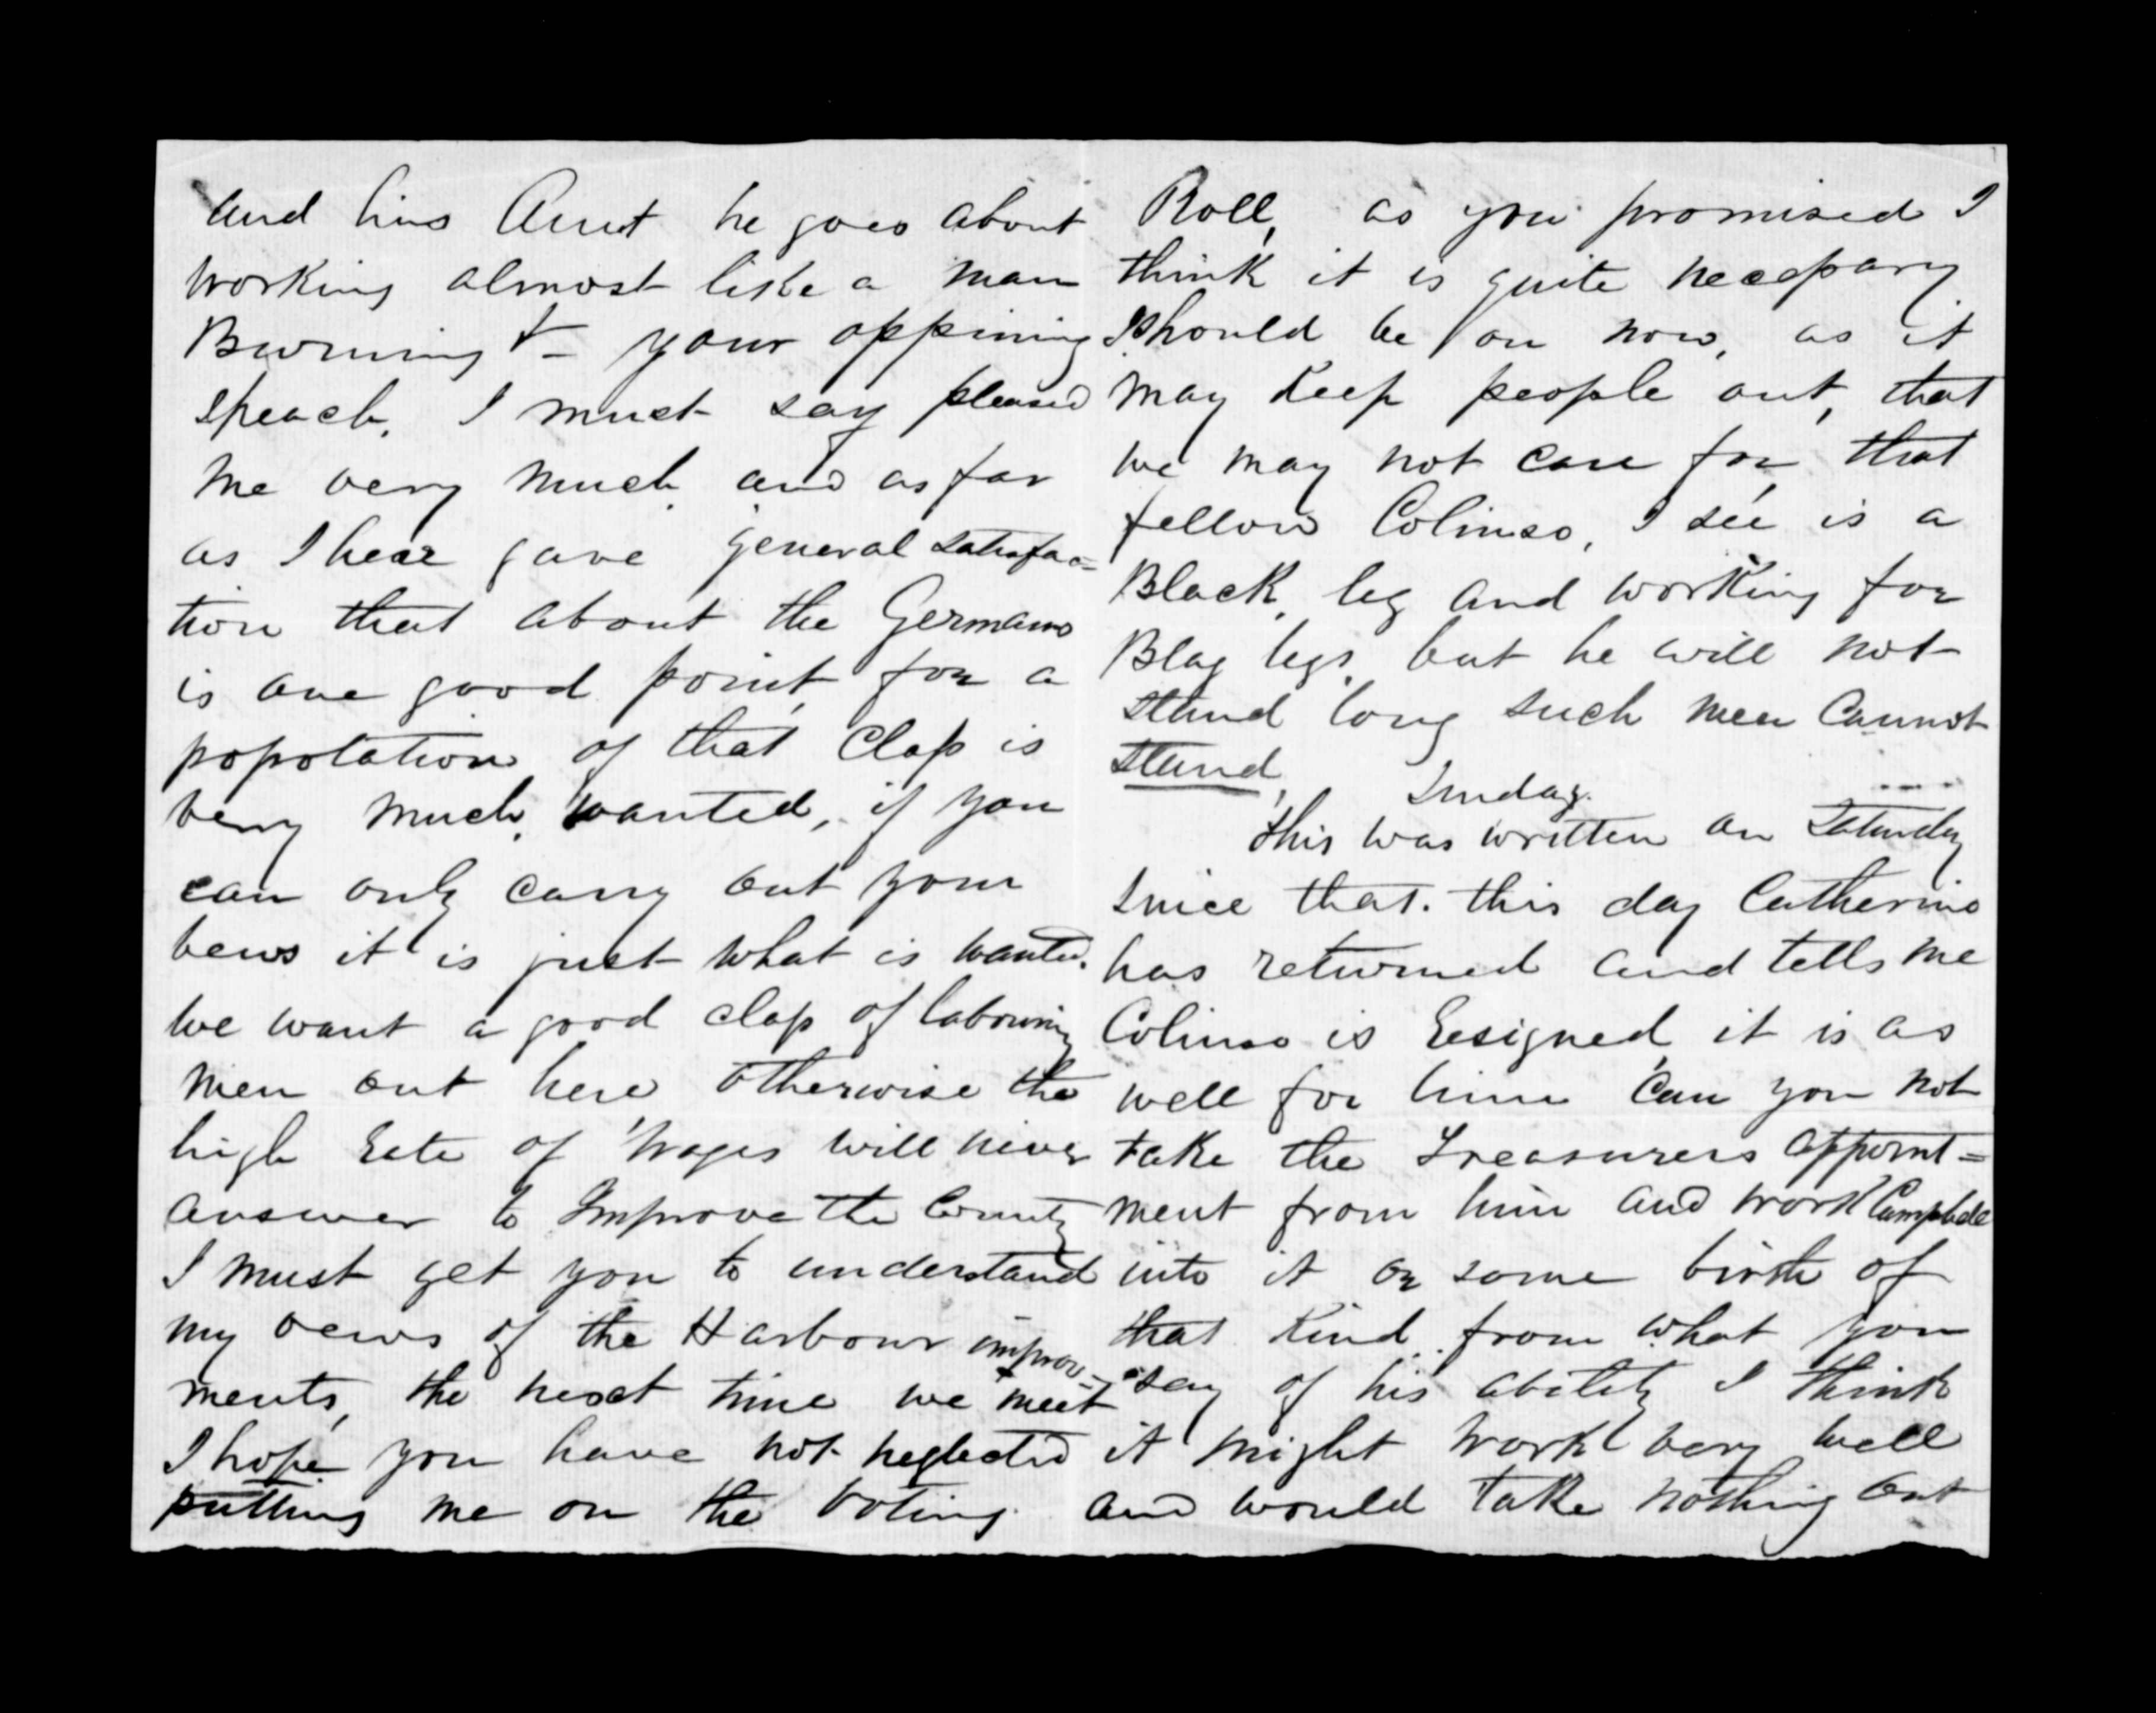 and his Aunt he goes about
working almost like a man
Burning & - your oppining
speach, I must say pleased
me very much, and as far
as I hear gave general satisfac=
tion that about the Germans
is one good point, for a
popolation of that Class is
very much, wanted, if you
can only carry out your
vews it is just what is wanted.
we want a good class of labouring
men out here otherwise the
high Rate of Wages will never
answer to Improve the County
I must get you to understand
my vews of the Harbour improv=
ments, the next time we meet
I hope you have not neglected
putting me on the voting
Roll, as you promised I
think it is quite necessary
I should be on now, as it
may keep people out, that
we may not care for, that
fellow Colinso, I see is a
Black, leg and working for
Blag legs, but he will not
stand long such men Cannot
stand,
Sunday.
this was written on Saturday
since that. this day Catherine
has returned and tells me
Colinso is Resigned, it is as
well for him Can you not
take the Treasurers appoint=
ment from him and work Campbell
into it or some birth of
that Kind. from what you
say of his ability I think
it might work very well
and would take nothing out